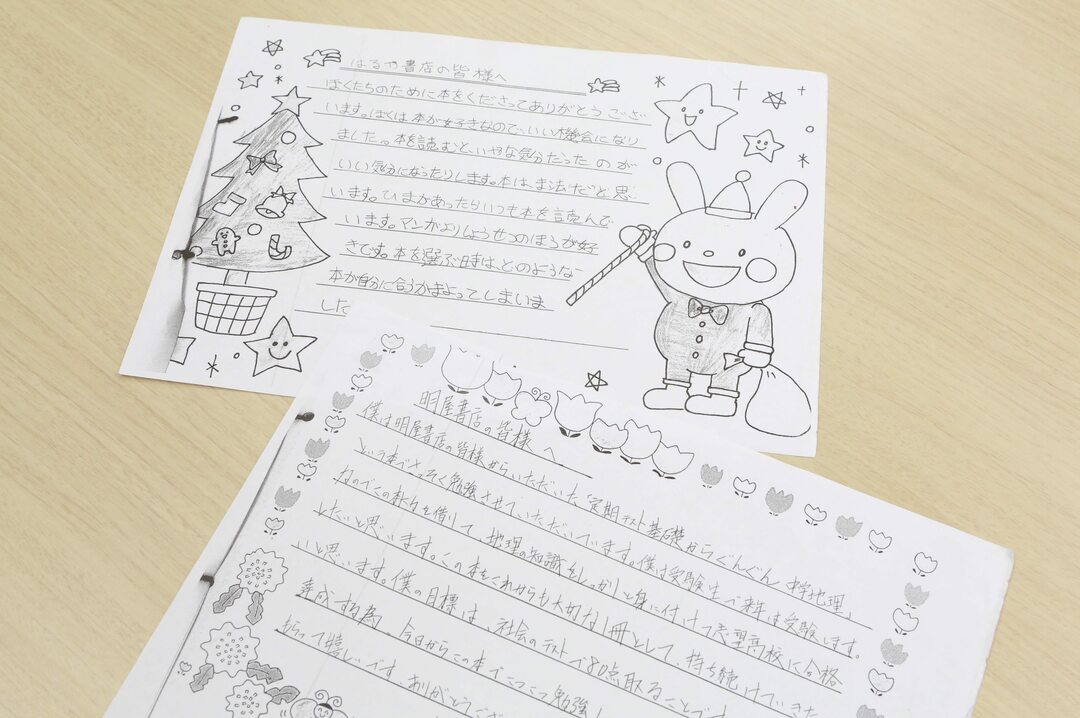 はるや書店の皆様へ
ぼくたちのために本をくださってありがとうござ
います。ぼくは本が好きなので、いい機会になり
ました。本を読むと、いやな気分だったのが
いい気分になったりします。本はまほうだと思
います。ひまがあったらいつも本を読んで
います。マンガよりしょうせつのほうが好
きです。本を選ぶ時は、どのような
本が自分に合うかまよってしまいま
した
明屋書店の皆様へ
僕は明屋書店の皆様からいただいた「定期テスト基礎からぐんぐん 中学地理」
という本でさっそく勉強させていただいています。僕は受験生で来年は受験します。
なのでこの本の力を借りて、地理の知識をしっかりと身に付けて志望高校に合格
したいと思います。この本をこれからも大切な1冊として、持ち続けていきた
いと思います。僕の目標は、社会のテストで80点取ることです
達成する為、今日からこの本でコツコツ勉強
って嬉しいです。ありがとうござ